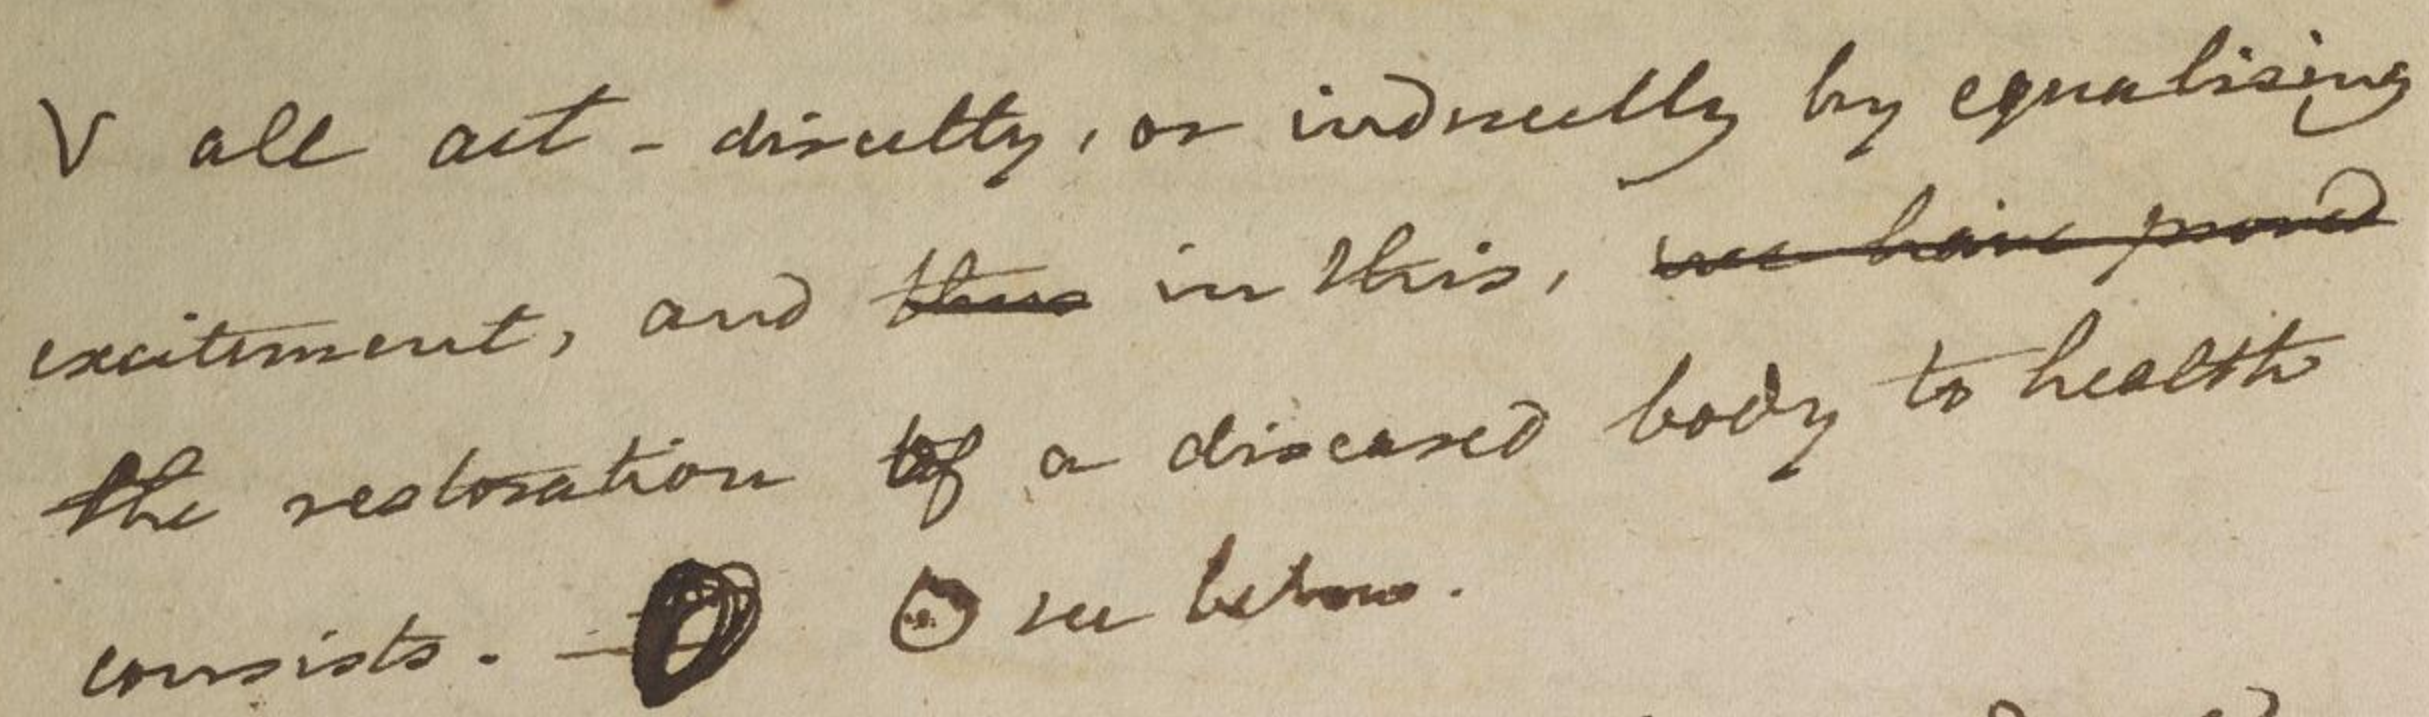 V all act - directly, or indirectly by equalising
excitement, and thus in this, we have proved
the restoration of a diseased body to health
consists. - see below.